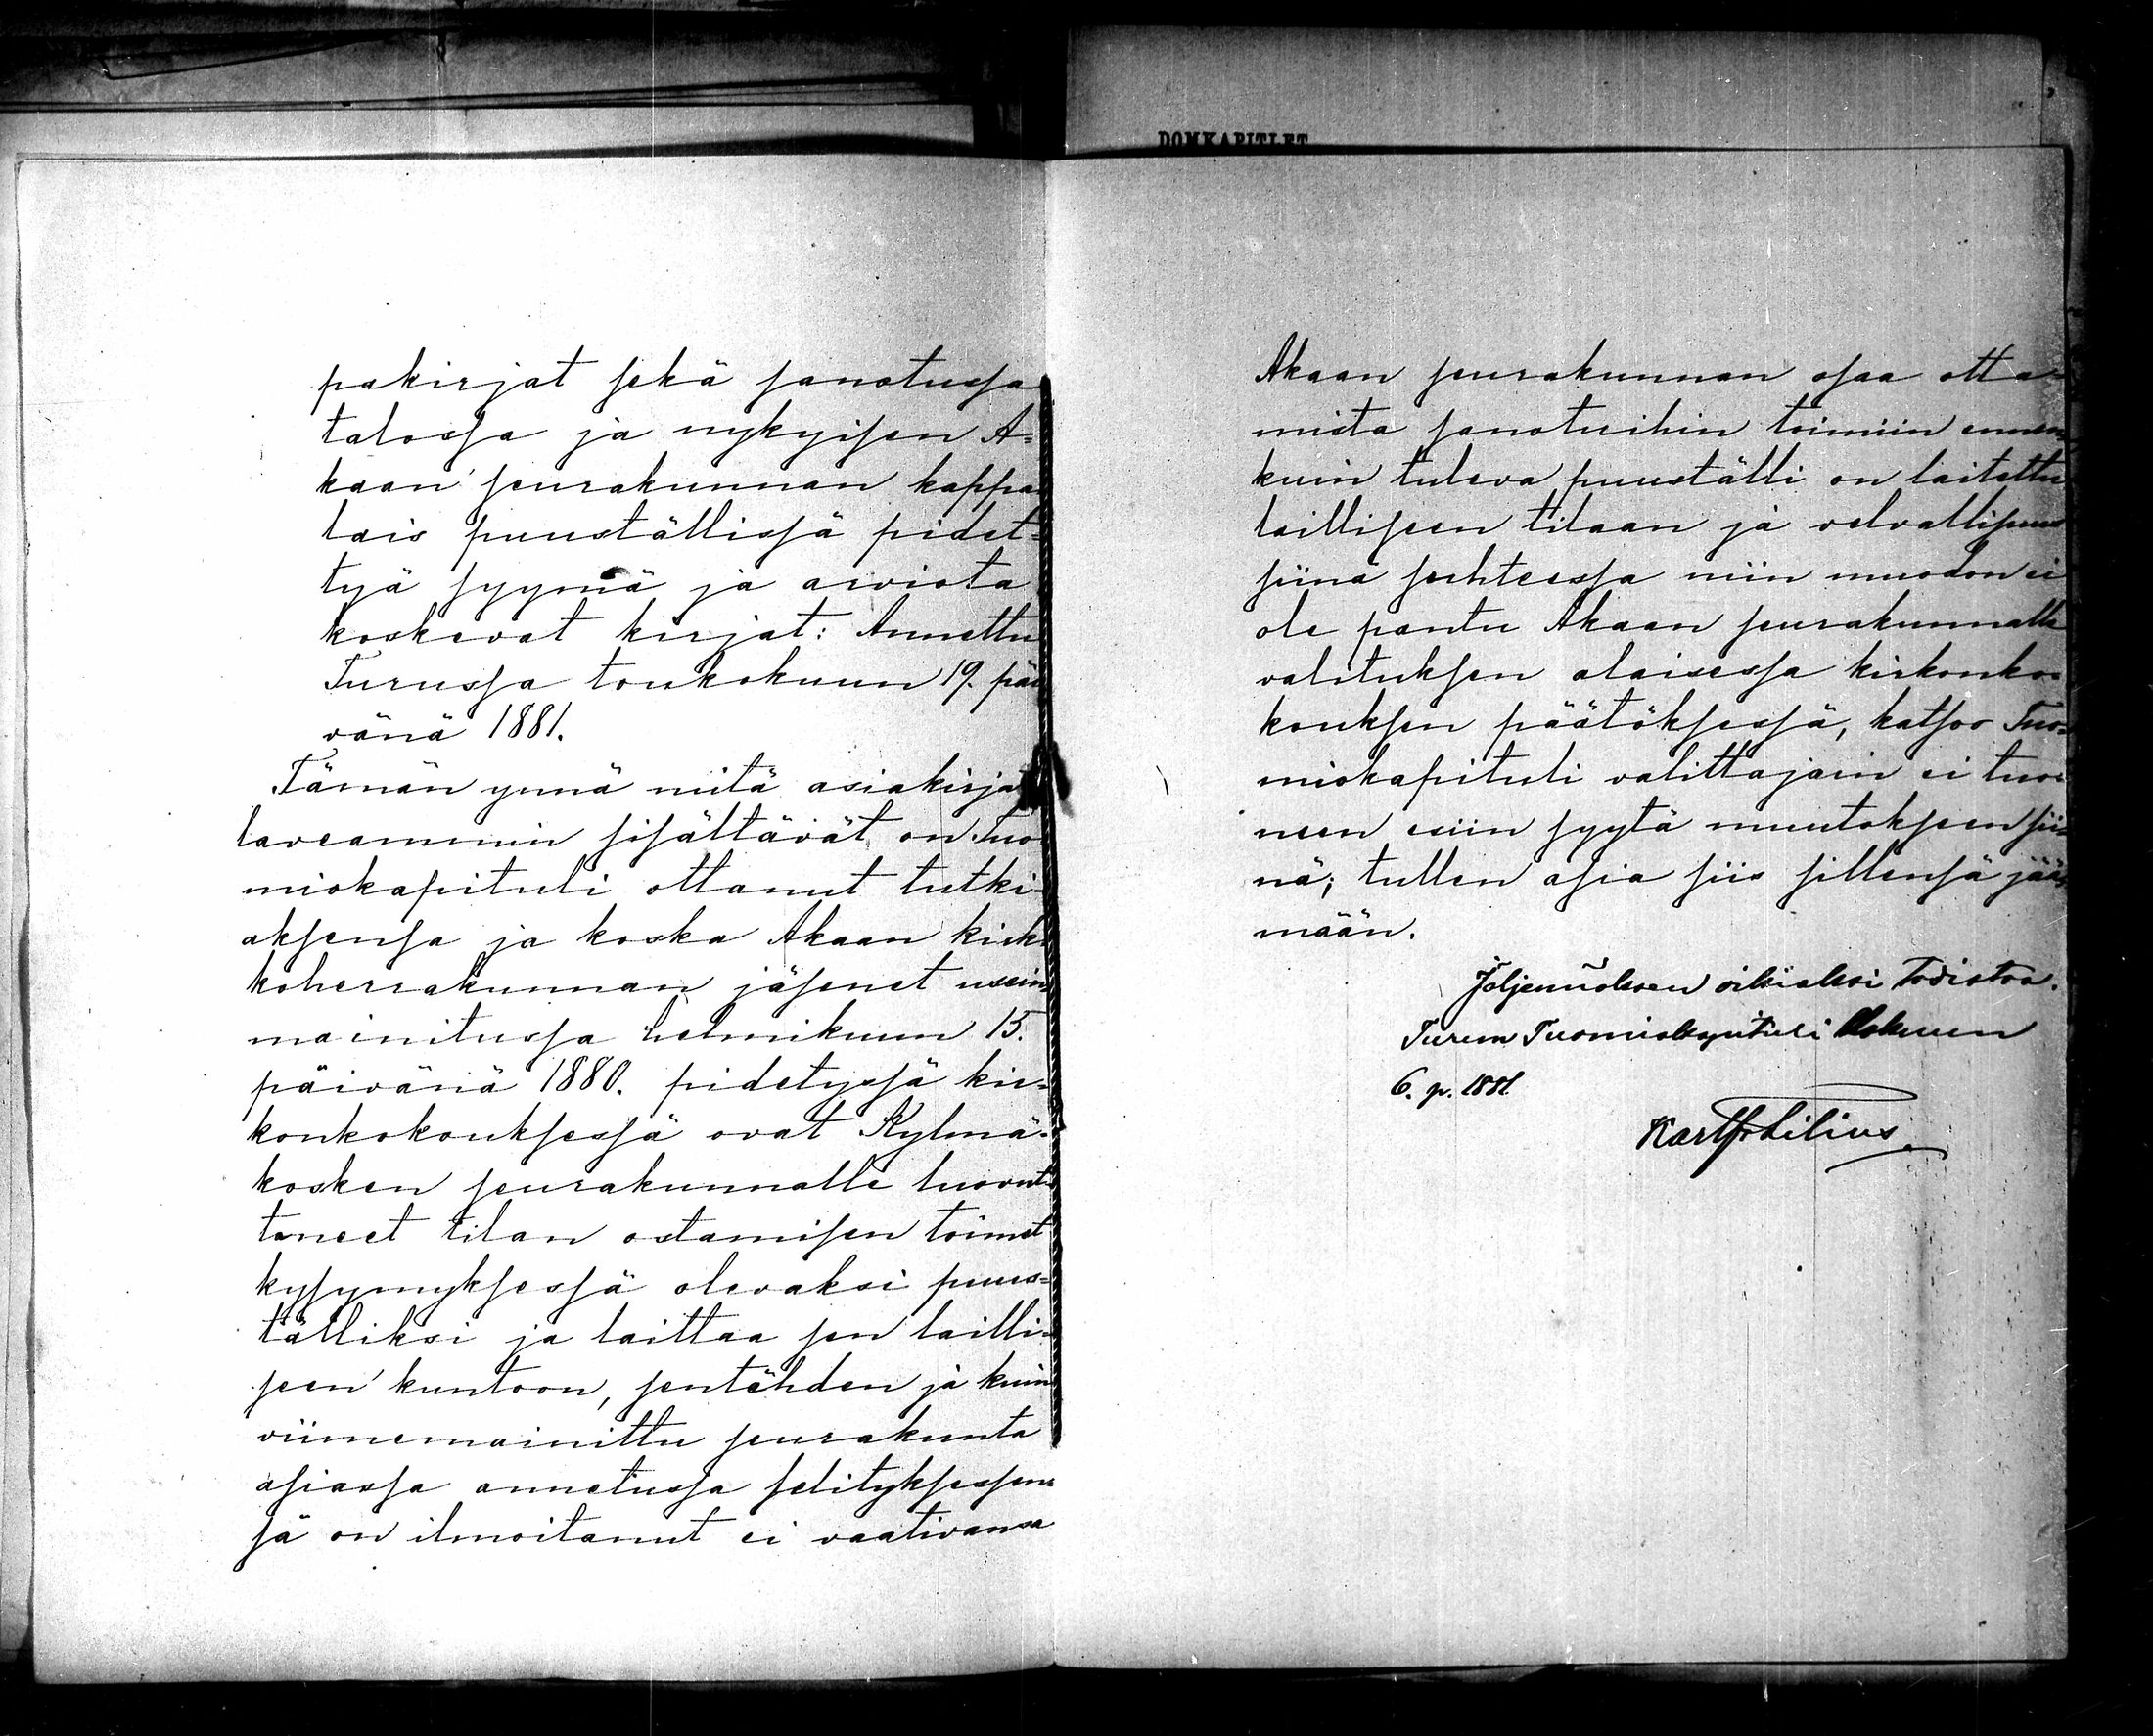 pakirjat sekä sanotussa
talossa ja nykyisen A=
kaan seurakunnan kappa
lais puuställissä pidet=
tyä syyniä ja arviota
koskevat kirjat: Annettu
Turussa toukokuun 19. päi
vänä 1881.
Tämän ynnä mitä asiakirjat
laveammin sisältävät on Tuo
miokapituli ottanut tutki=
aksensa ja koska Akaan kirk
koherrakunnan jäsenet usein
mainitussa helmikuun 15.
päivänä 1880. pidetyssä kir=
konkokouksessa ovat Kylmä=
kosken seurakunnalle luovut
taneet tilan ostamisen toimet
kysymyksessä olevaksi puus=
tälliksi ja laittaa sen lailli=
seen kuntoon, sentähden ja kuin
viimemainittu seurakunta
asiassa annetussa selityksessen
sä on ilmoitanut ei vaativansa
DOMKAPITLET
Akaan seurakunnan osaa otta=
mista sanotuihin toimiin ennen
kuin tuleva puuställi on laitettu
lailliseen tilaan ja velvallisuus
siinä suhteessa niin muodon ei
ole pantu Akaan seurakunnalle
valituksen alaisessa kirkonko=
kouksen päätöksessä, katsoo Tuo=
miokapituli valittajain ei tuo=
neen esiin syytä muutokseen sii=
nä; tullen asia siis sillensä jää=
mään.
Jäljennöksen oikiaksi todistaa.
Turun Tuomiokapituli Elokuun
6. p. 1881.
Lilius